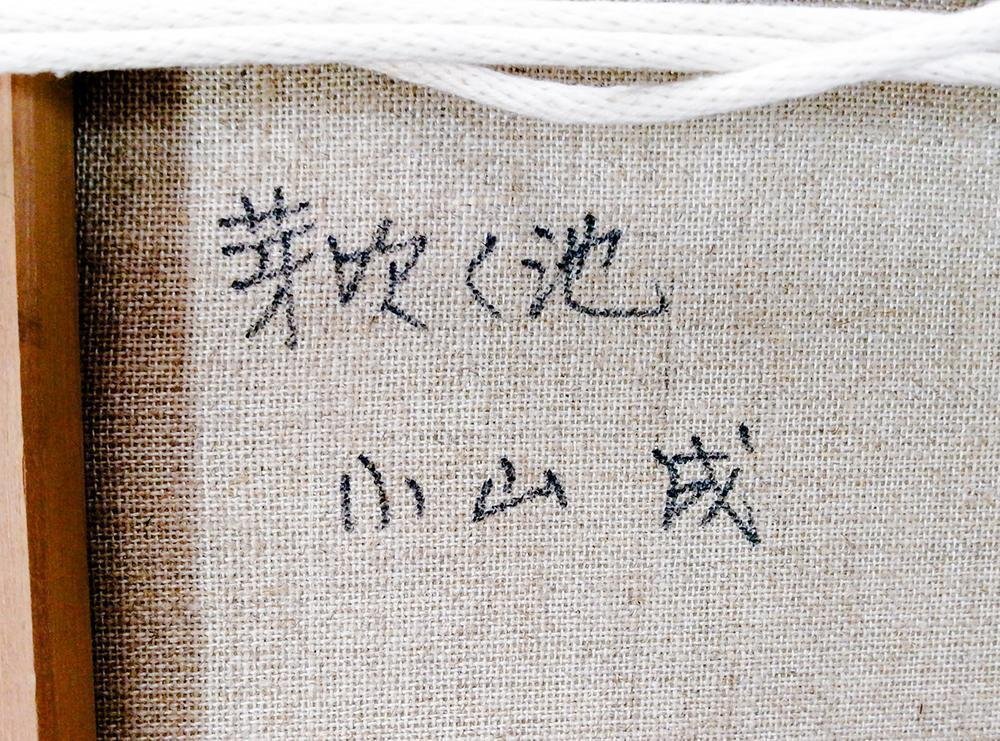 芽吹く池
小山 成